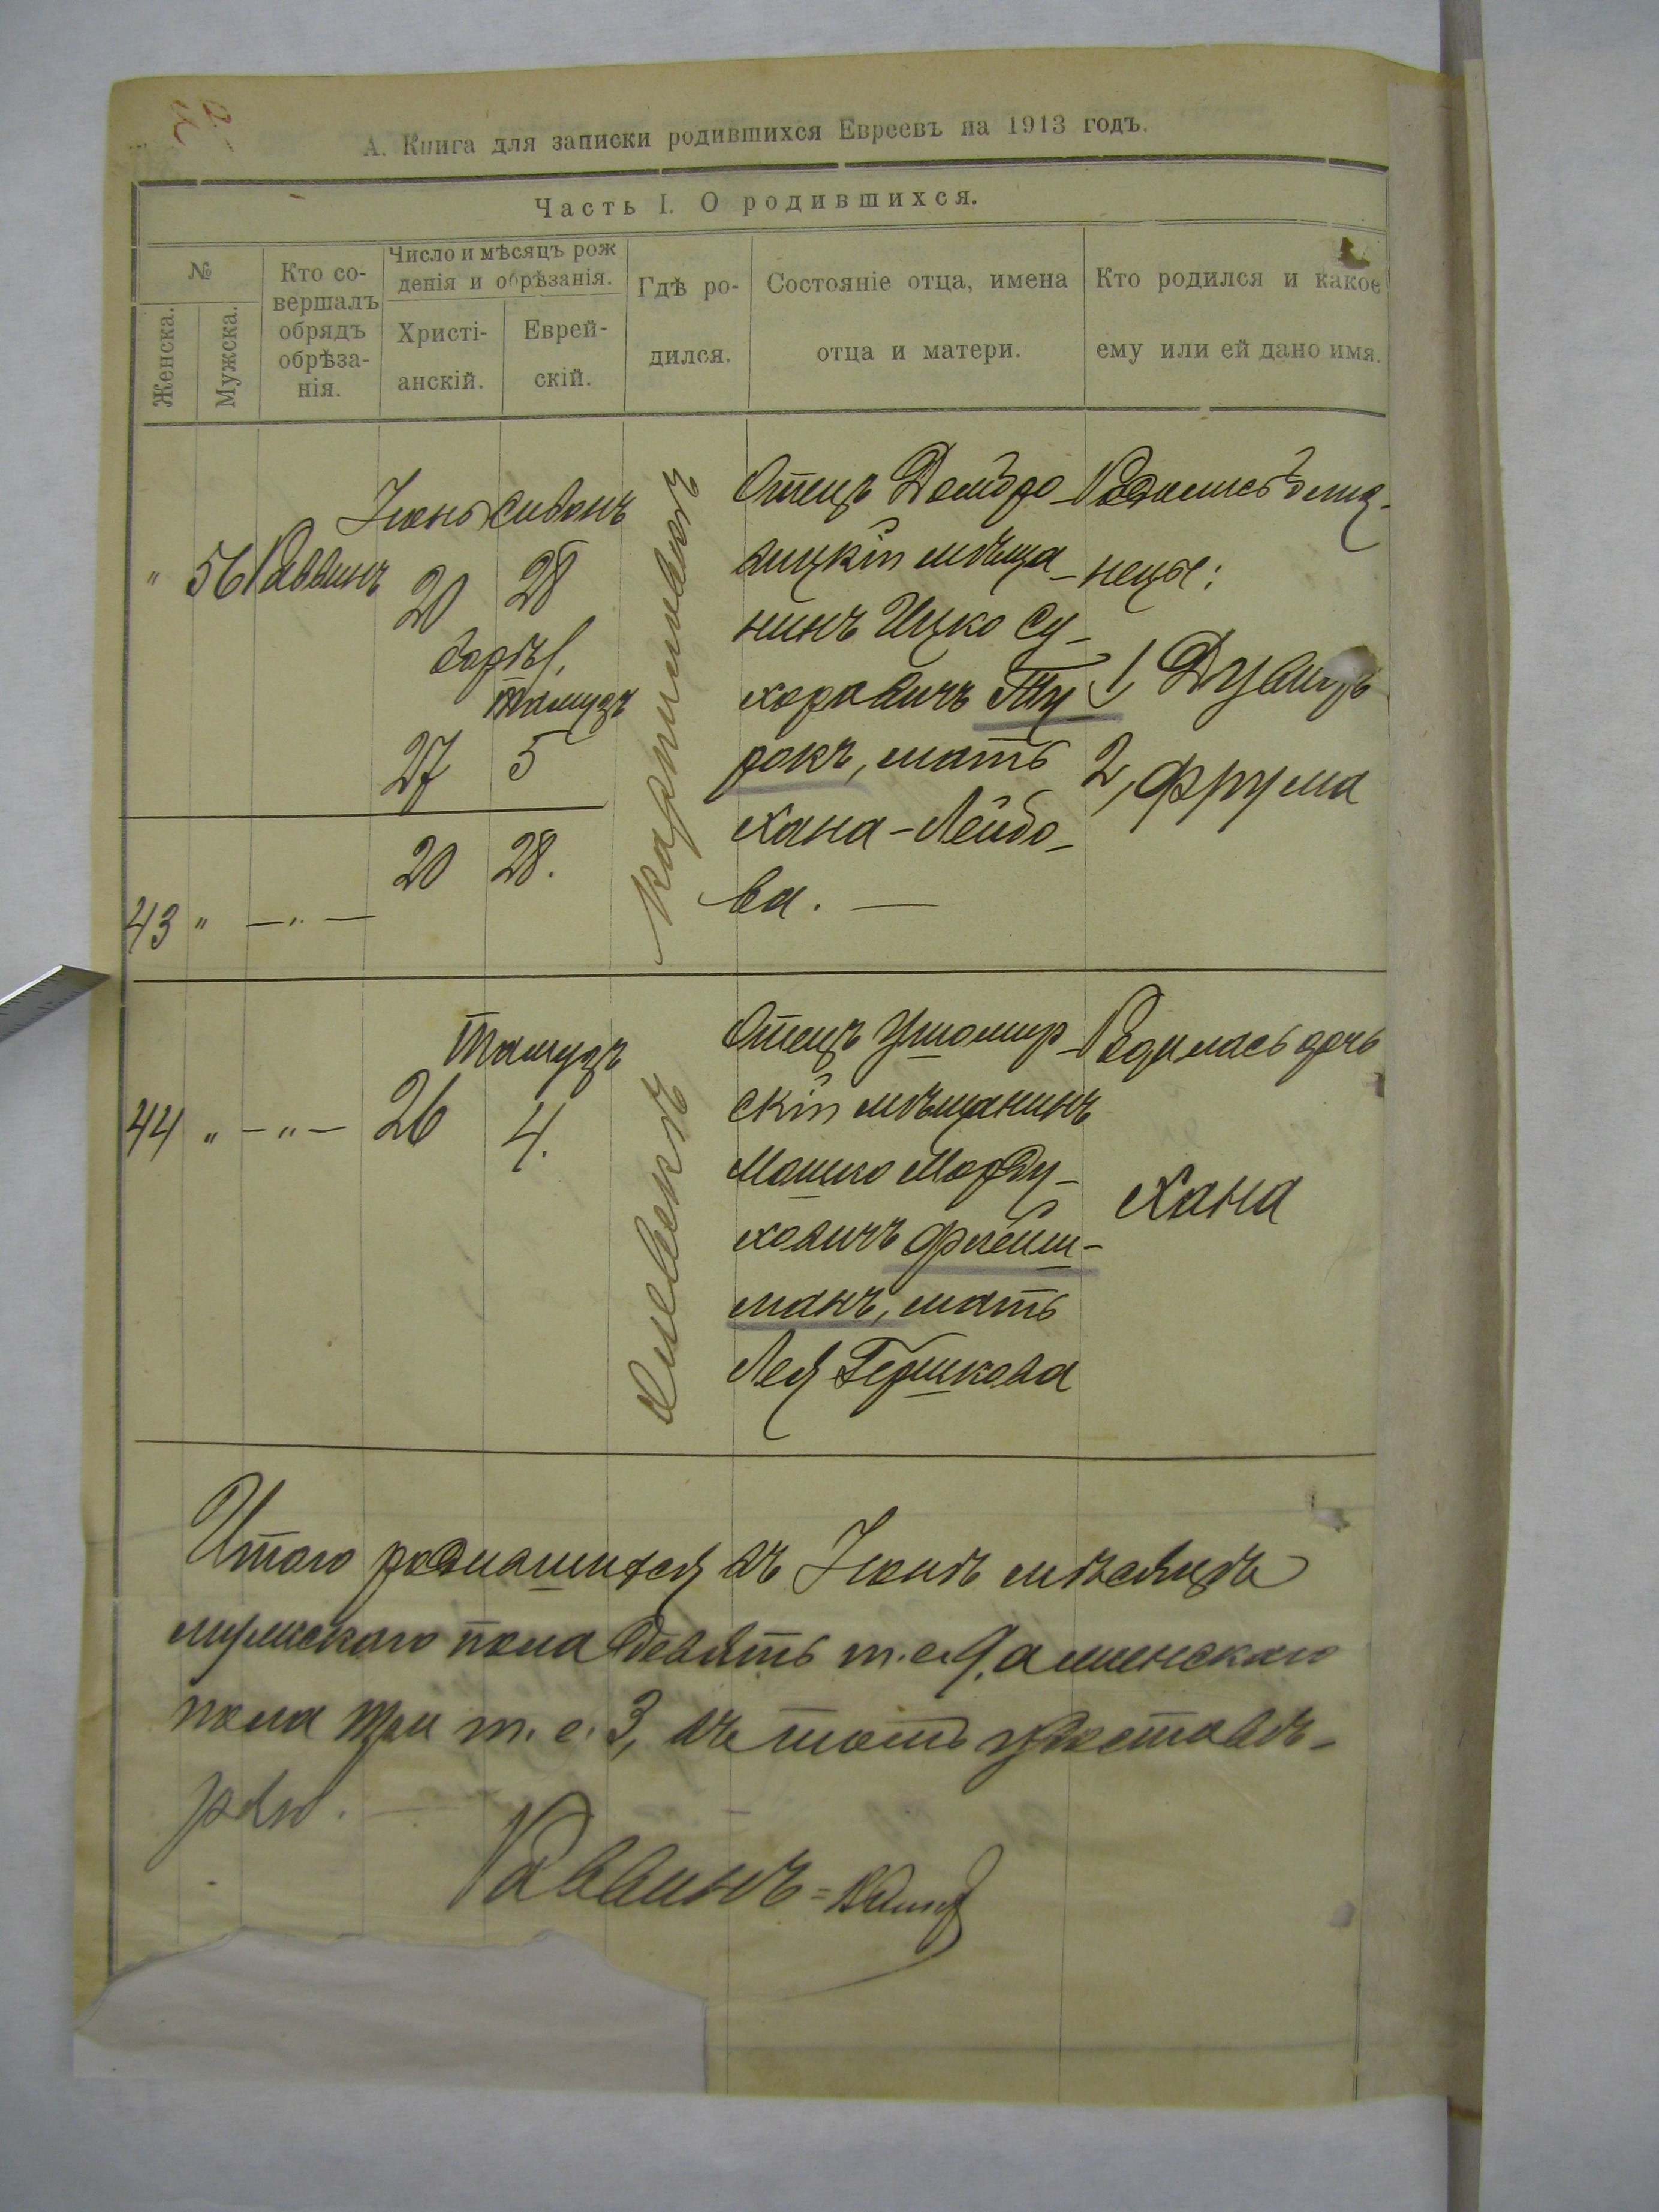 А. Книга для записки родившихся Евреевъ на 1913 годъ.
Часть I. О родившихся.
№
Женска.
Мужска.
Кто со-
вершалъ
обрядъ
обрѣза-
нія.
Число и мѣсяцъ рож
денія и обрѣзанія.
Христі-
анскій.
Еврей-
скій.
Гдѣ ро-
дился.
Состояніе отца, имена
отца и матери.
Кто родился и какое
ему или ей дано имя.
" 56 Раввинъ
Іюнь Сиванъ
20 28
Тамузъ
27 5
Отецъ Домбро-
вицкій мѣща-
нинъ Ицко Су-
харовичъ Ту-
рокъ, мать
Хана-Лейбо-
ва. —
Родились близ-
нецы:
1,
2, Фрума
43 " —"—
20 28.
44 " —"— 26
Тамузъ
4.
Олевскъ
Отецъ Ушомир-
скій мѣщанинъ
Мошко Морду-
ховичъ Флейш-
манъ, мать
Лея Гершкова
Родилась дочь
Хана
Итого родившихся въ Іюнѣ мѣсяцѣ
мужскаго пола девять т.е. 9, а женскаго
пола три т. е. 3, въ томъ удостовѣ-
ряю. —
Раввинъ =